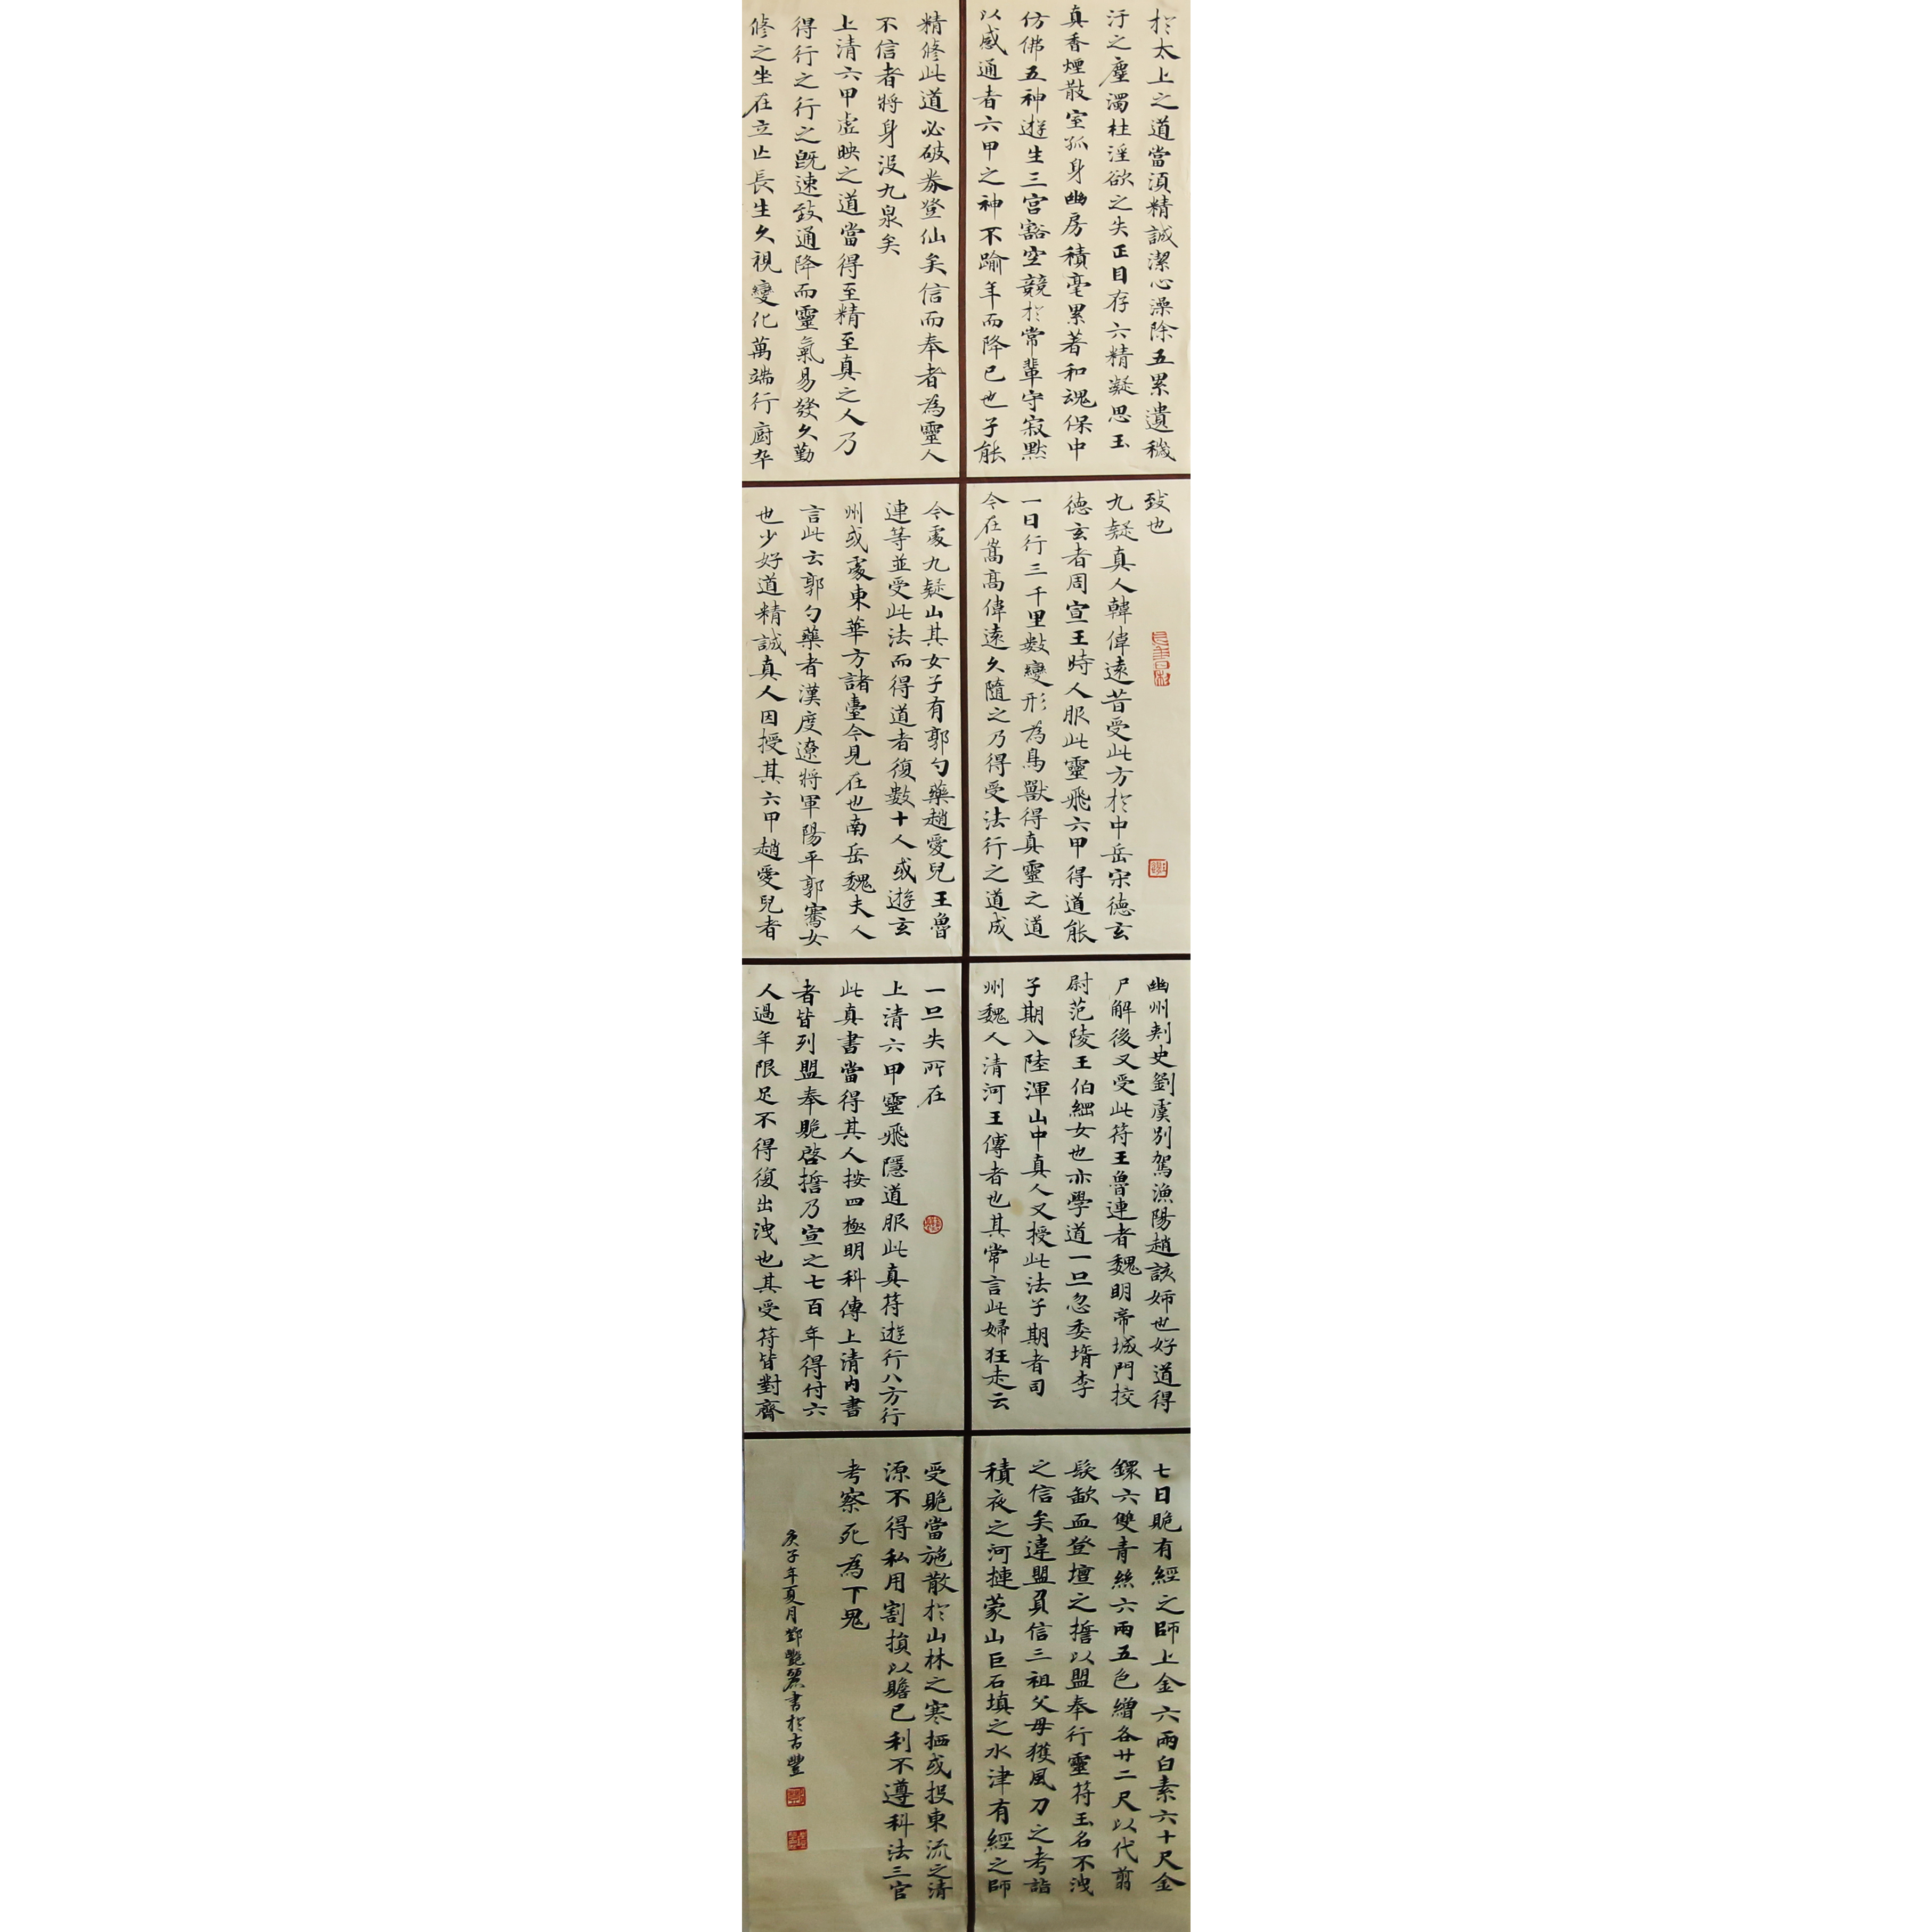 於太上之道當須精誠潔心澡除五累遺穢
汙之塵濁杜淫欲之失正目存六精凝思玉
真香煙散室孤身幽房積毫累著和魂保中
仿佛五神遊生三宮豁空競於常輩守寂默
以感通者六甲之神不踰年而降已也子能
精修此道必破券登仙矣信而奉者為靈人
不信者將身沒九泉矣
上清六甲虛映之道當得至精至真之人乃
得行之行之既速致通降而靈氣易發久勤
修之坐在立亡長生久視變化萬端行廚卒
致也
九疑真人韓偉遠昔受此方於中岳宋德玄
德玄者周宣王時人服此靈飛六甲得道能
一日行三千里數變形為鳥獸得真靈之道
今在嵩高偉遠久隨之乃得受法行之道成
今處九疑山其女子有郭勺藥趙愛兒王魯
連等並受此法而得道者復數十人或遊玄
州或處東華方諸臺今見在也南岳魏夫人
言此云郭勺藥者漢度遼將軍陽平郭騫女
也少好道精誠真人因授其六甲趙愛兒者
幽州刺史劉虞別駕漁陽趙該姊也好道得
尸解後又受此符王魯連者魏明帝城門挍
尉范陵王伯綱女也亦學道一旦忽委壻李
子期入陸渾山中真人又授此法子期者司
州魏人清河王傅者也其常言此婦狂走云
一旦失所在
上清六甲靈飛隱道服此真符遊行八方行
此真書當得其人按四極明科傳上清內書
者皆列盟奉贉啓擔乃宣之七百年得付六
人過年限足不得復出洩也其受符皆對齋
七日贉有經之師上金六兩白素六十尺金
鐶六雙青絲六兩五色繒各廿二尺以代翦
髮歃血登壇之擔以盟奉行靈符玉名不洩
之信矣違盟負信三祖父母獲風刀之考詣
積夜之河摙蒙山巨石填之水津有經之師
受贉當施散於山林之寒栖或投東流之清
源不得私用割損以贍己利不遵科法三官
考察死為下鬼
庚子年夏月鄧艷麗書於古豐